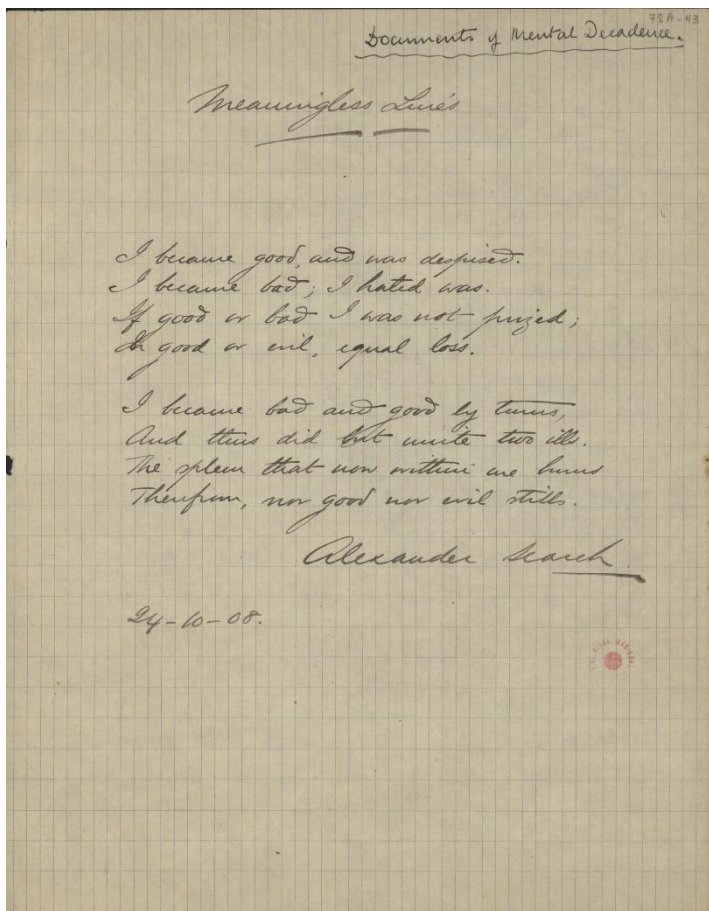 78A-43
Documents of Mental Decadence.
Meaningless Lines
I became good, and was despised.
I became bad; I hated was.
If good or bad I was not prized;
In good or evil, equal loss.
I became bad and good by turns,
And thus did but unite two ills.
The spleen that now within me burns
Therefrom, nor good nor evil stills.
Alexander Search
24-10-08.